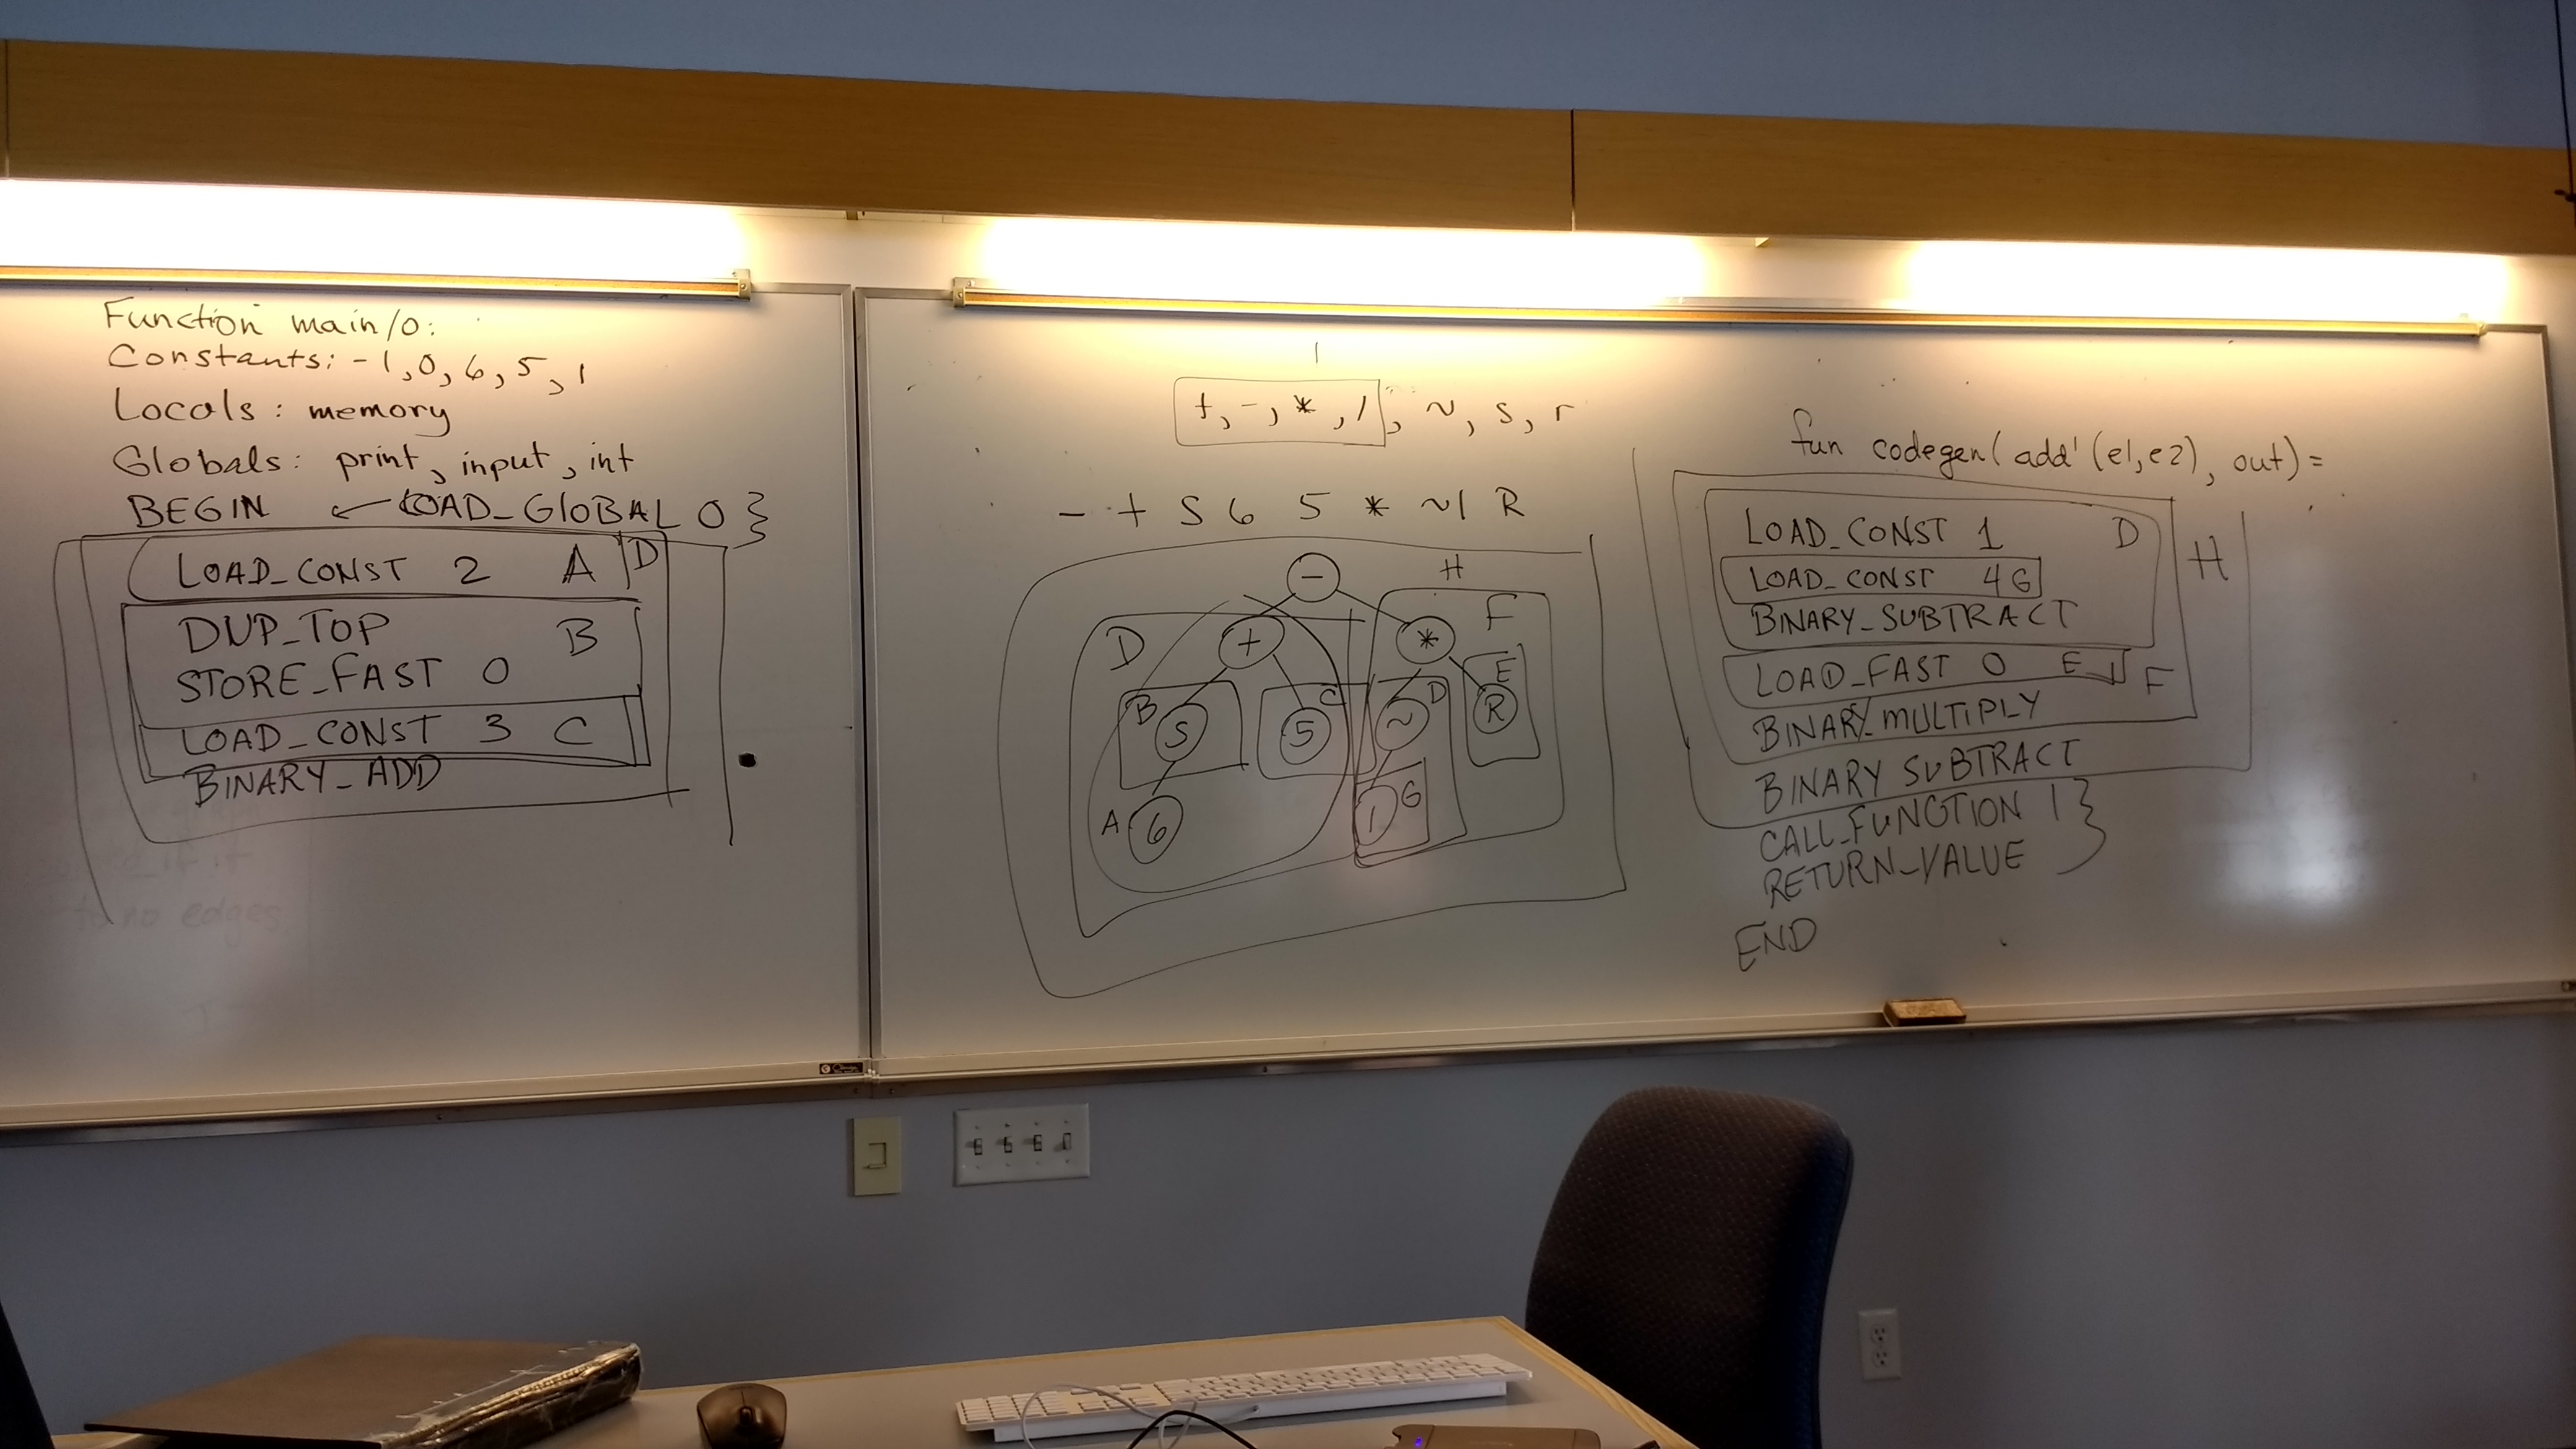 Function main/0:
Constants: -1, 0, 6, 5, 1
Locals: memory
Globals: print, input, int
BEGIN ← LOAD_GLOBAL 0 }
LOAD_CONST 2 A D
DUP_TOP B
STORE_FAST 0
LOAD_CONST 3 C
BINARY_ADD
to no edges
+, -, *, /, ~, s, r
- + S 6 5 * ~1 R
- H
D + * F
B S 5 C ~ D R E
A 6 1 G
fun codegen(add'(e1,e2), out) =
LOAD_CONST 1 D
LOAD_CONST 4 G H
BINARY_SUBTRACT
LOAD_FAST 0 E F
BINARY_MULTIPLY
BINARY SUBTRACT
CALL_FUNCTION 1 }
RETURN_VALUE
END